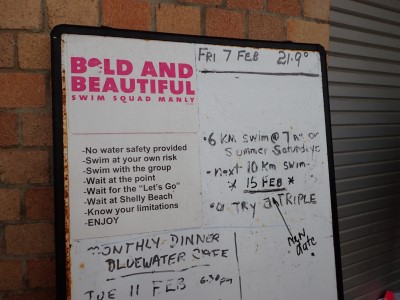 BOLD AND
BEAUTIFUL
SWIM SQUAD MANLY
-No water safety provided
-Swim at your own risk
-Swim with the group
-Wait at the point
-Wait for the "Let's Go"
-Wait at Shelly Beach
-Know your limitations
-ENJOY
FRI 7 FEB 21.9°
• 6 KM SWIM @ 7 on
Summer Saturdays
• next 10 km swim-
* 15 FEB *
• TRY a TRIPLE
New
date
MONTHLY DINNER
BLUEWATER CAFE
TUE 11 FEB 6:30pm